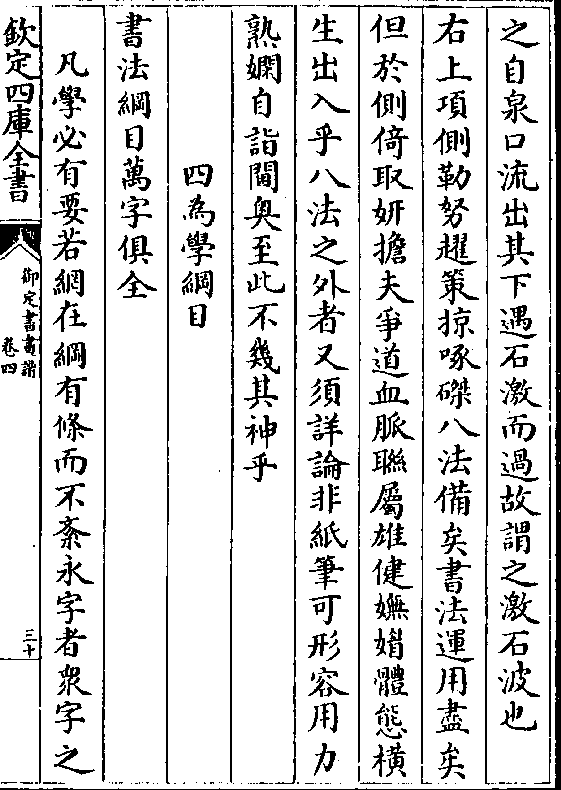 之自泉口流出其下遇石激而過故謂之激石波也
右上項側勒努趯策掠啄磔八法備矣書法運用盡矣
但於側倚取妍擔夫爭道血脈聯屬雄健嫵媚體態橫
生出入乎八法之外者又須詳論非紙筆可形容用力
熟嫻自詣閫奧至此不幾其神乎
四為學綱目
書法綱目萬字俱全
凡學必有要若網在綱有條而不紊永字者衆字之
欽定四庫全書
御定書畫譜
卷四
三十